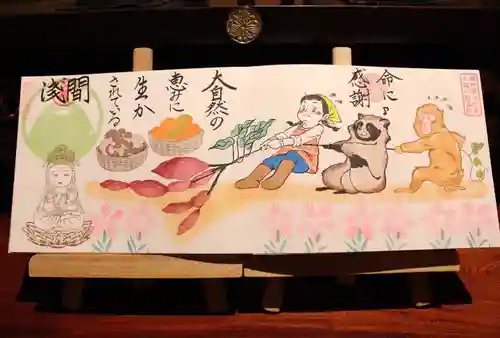 命に
感謝
大自然の
恵みに
生か
されてる
淺間